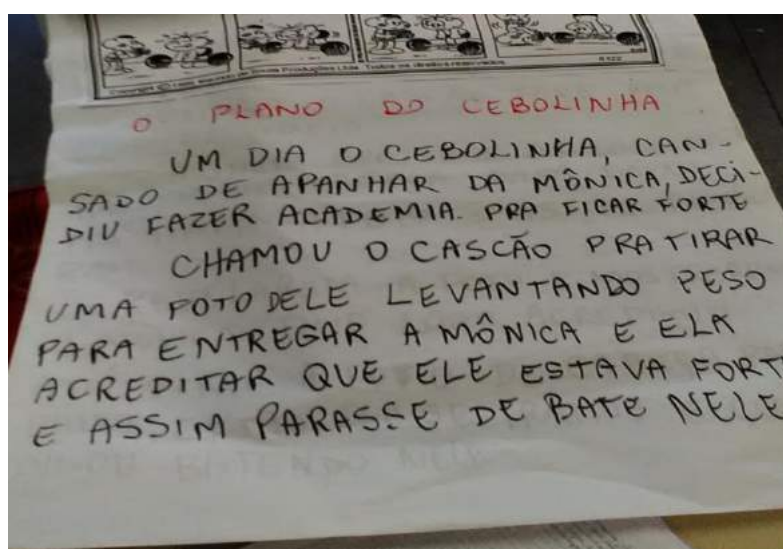 Todos os direitos reservados.
O PLANO DO CEBOLINHA
UM DIA O CEBOLINHA, CAN-
SADO DE APANHAR DA MÔNICA, DECI-
DIU FAZER ACADEMIA. PRA FICAR FORTE
CHAMOU O CASCÃO PRA TIRAR
UMA FOTO DELE LEVANTANDO PESO
PARA ENTREGAR A MÔNICA E ELA
ACREDITAR QUE ELE ESTAVA FORT
E ASSIM PARASSE DE BATE NELE